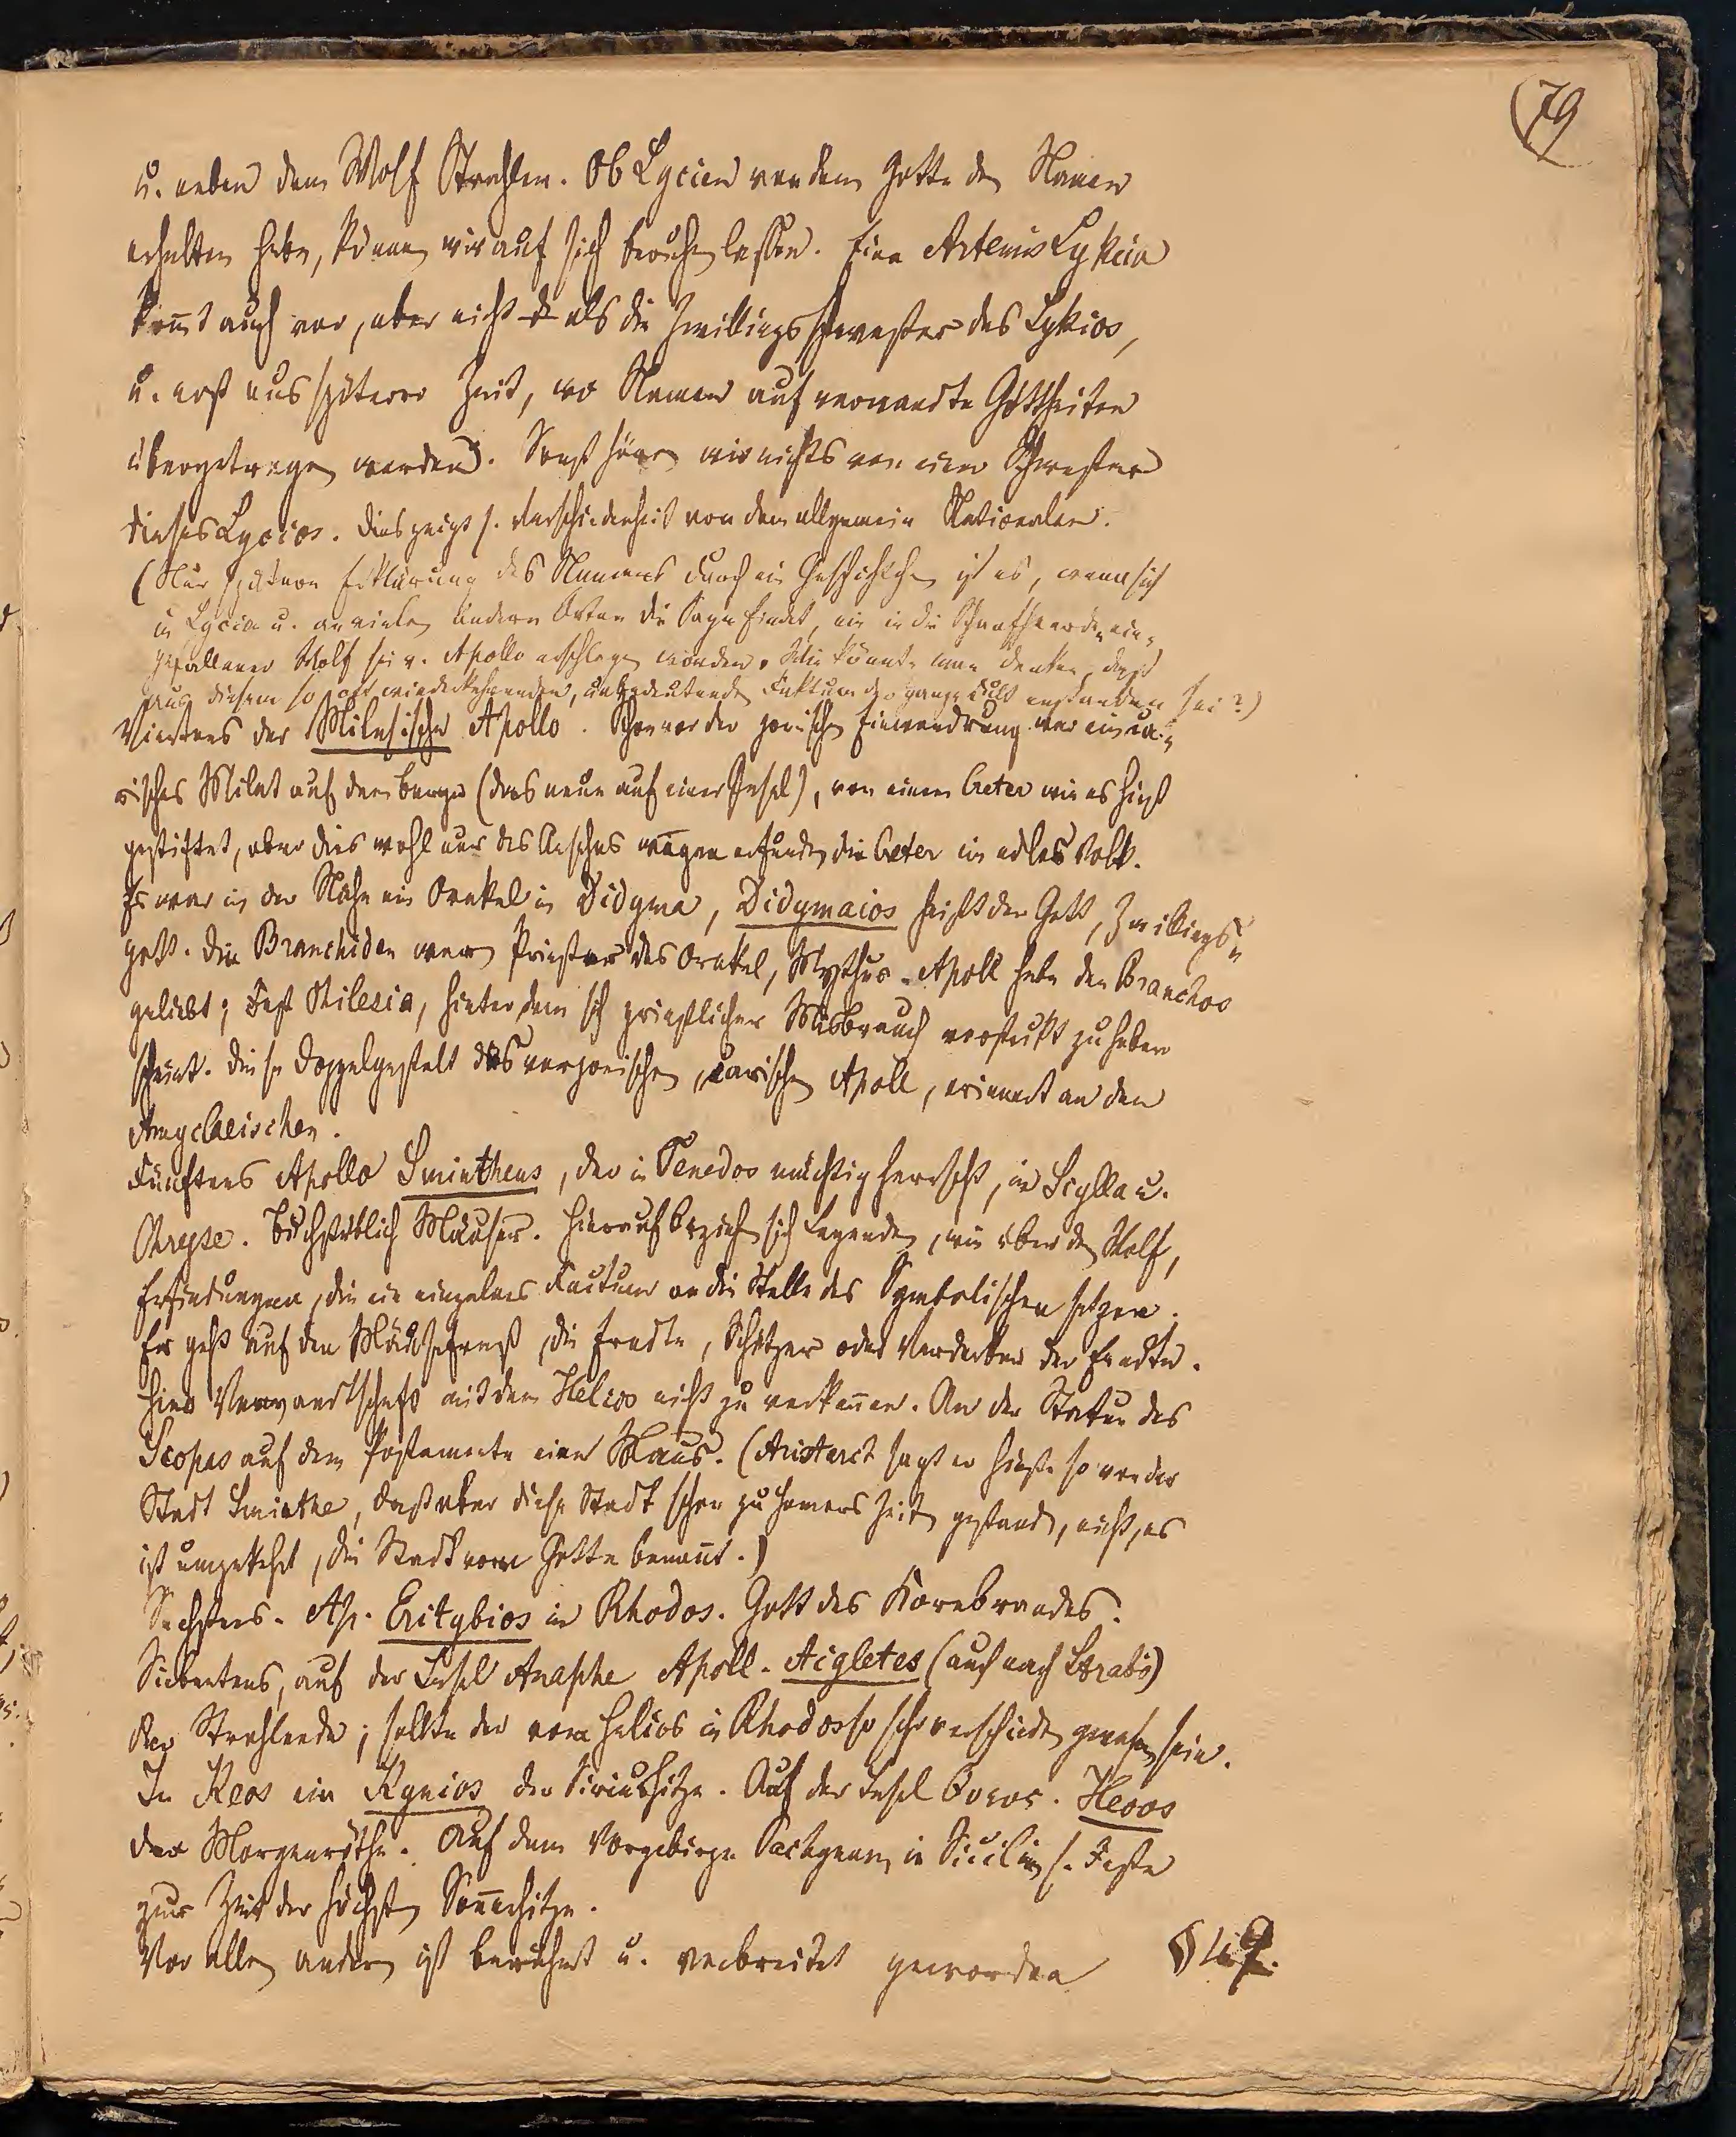 79
u. neben dem Wolf Strahlen. Ob Lycien von dem Gotte den Namen
erhalten habe, können wir auf sich beruhen lassen. Eine Artemis Lykeia
kom̄t auch vor, aber nicht als die Zwillingsschwester des Lykios,
u. erst aus späterer Zeit, wo Namen auf verwandte Gottheiten
übergetragen werden. Sonst hören wir nichts von einer Schwester
dieses Lycios. Dies zeigt s. Verschiedenheit von dem allgemein Nationalen.
(Nur spätere Erklärung des Namens durch ein Geschichtchen ist es, wenn sich
in Lycia u. an vielen andern Orten die Sage findet, ein in die Schaafheerden ein-
gefallener Wolf sei v. Apollo erschlagen worden. Wie könnte man denken, daß
aus diesem so oft wiederkehrenden, unbedeutenden Faktum der ganze Cult entstanden sei?)
Viertens der Milesische Apollo. Schon vor der jonischen Einwandrung war ein ca-
risches Milet auf dem Berge (das neue auf einer Insel), von einem Creter wie es hieß
gestiftet, aber dies wohl nur des Ansehns wegen erfunden, die Creter ein edles Volk.
Es war in der Nähe ein Orakel in Didyma, Didymaios heißt der Gott, Zwillings-
gott. Die Branchiden waren Priester des Orakel, Mythus Apoll habe den Branchos
geliebt; Fest Milesia, hinter dem sich priesterlicher Misbrauch versteckt zu haben
scheint. Diese Doppelgestalt des vorjonischen, carischen Apoll, erinnert an den
Amyclaeischen.
Fünftens Apollo Smintheus, der in Tenedos mächtig herrscht, in Scylla u.
Chryse. Buchstäblich Mäuser. Hierauf beziehn sich Legenden, wie über den Wolf,
Erfindungen, die ein einzelnes Factum an die Stelle des Symbolischen setzen.
Er geht auf den Mäusefraß, die Erndte, Schützer oder Verderber der Erndte.
Hier Verwandtschaft mit dem Helios nicht zu verken̄en. An der Statue des
Scopas auf dem Postamente eine Maus. (Aristarch sagt er hieße so von der
Stadt Sminthe, daß aber diese Stadt schon zu Homers Zeiten gestanden, nicht, es
ist umgekehrt, die Stadt vom Gotte benan̄t.)
Sechstens. Ap. Eritybios in Rhodos. Gott des Kornbrandes.
Siebentens, auf der Insel Anaphe Apoll. Aigletes (auch nach Strabo)
der Strahlende; sollte der vom Helios in Rhodos so sehr verschieden gewesen sein.
In Keos ein Kynios der Siriushitze. Auf der Insel Heoos
der Morgenröthe. Auf dem Vorgebirge Pachynum in Sicilien s. Feste
zur Zeit der höchsten Son̄enhitze.
Vor allen andern ist berühmt u. verbreitet geworden §49.